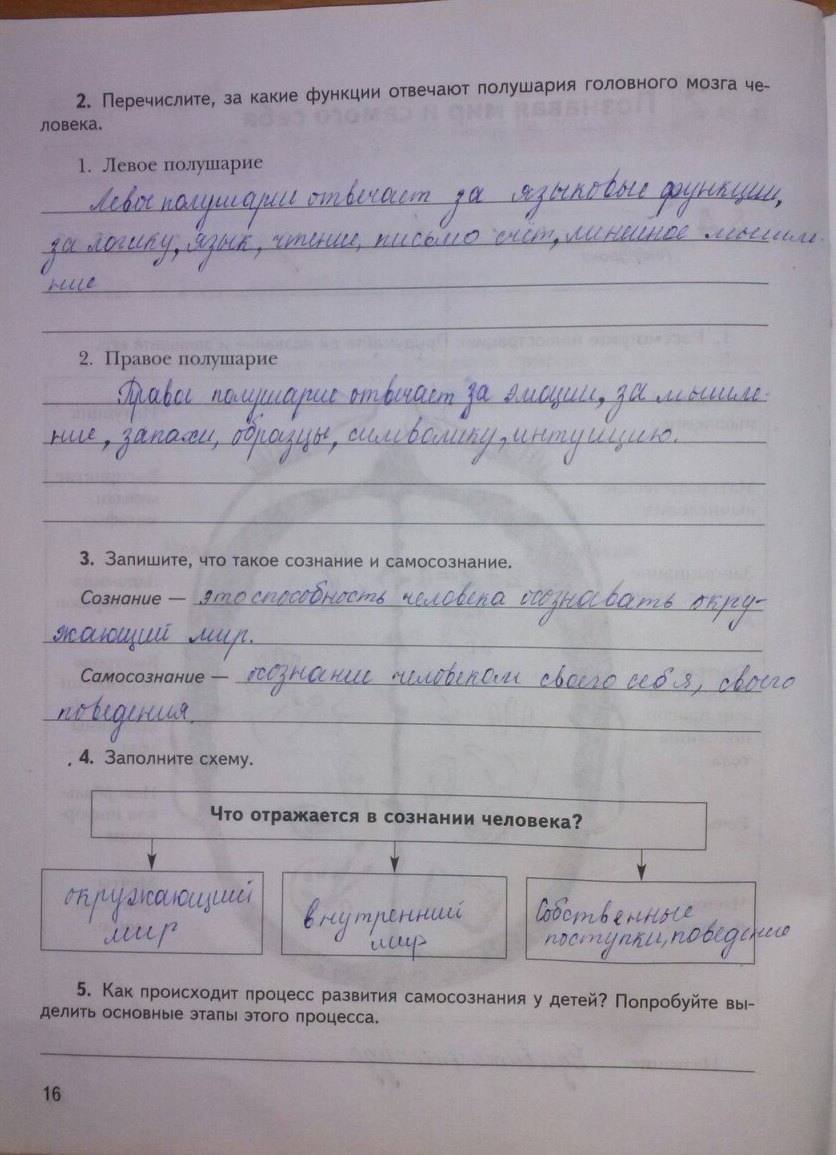 2. Перечислите, за какие функции отвечают полушария головного мозга че-
ловека.
1. Левое полушарие
Левое полушарие отвечает за языковые функции,
за логику, язык, чтение, письмо счёт, линейное мышле-
ние
2. Правое полушарие
Правое полушарие отвечает за эмоции, за мышле-
ние, запахи, образцы, символику, интуицию.
3. Запишите, что такое сознание и самосознание.
Сознание — это способность человека осознавать окру-
жающий мир.
Самосознание — осознание человеком своего себя, своего
поведения
4. Заполните схему.
Что отражается в сознании человека?
окружающий
мир
внутренний
мир
Собственные
поступки, поведение
5. Как происходит процесс развития самосознания у детей? Попробуйте вы-
делить основные этапы этого процесса.
16